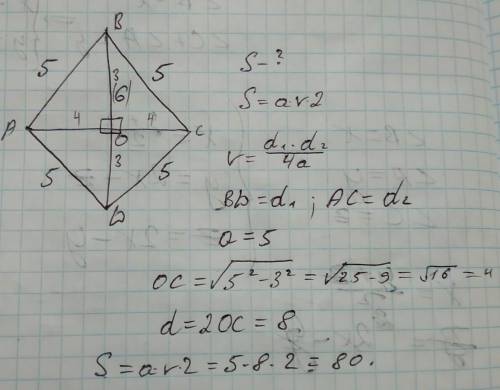 B
5 3 5
(6)
A 4 4 C
O
5 3 5
D
S - ?
S = a·r·2
r = d₁·d₂/4a
BD = d₁ ; AC = d₂
a = 5
OC = √5²-3² = √25-9 = √16 = 4
d = 2OC = 8
S = a·r·2 = 5·8·2 = 80.